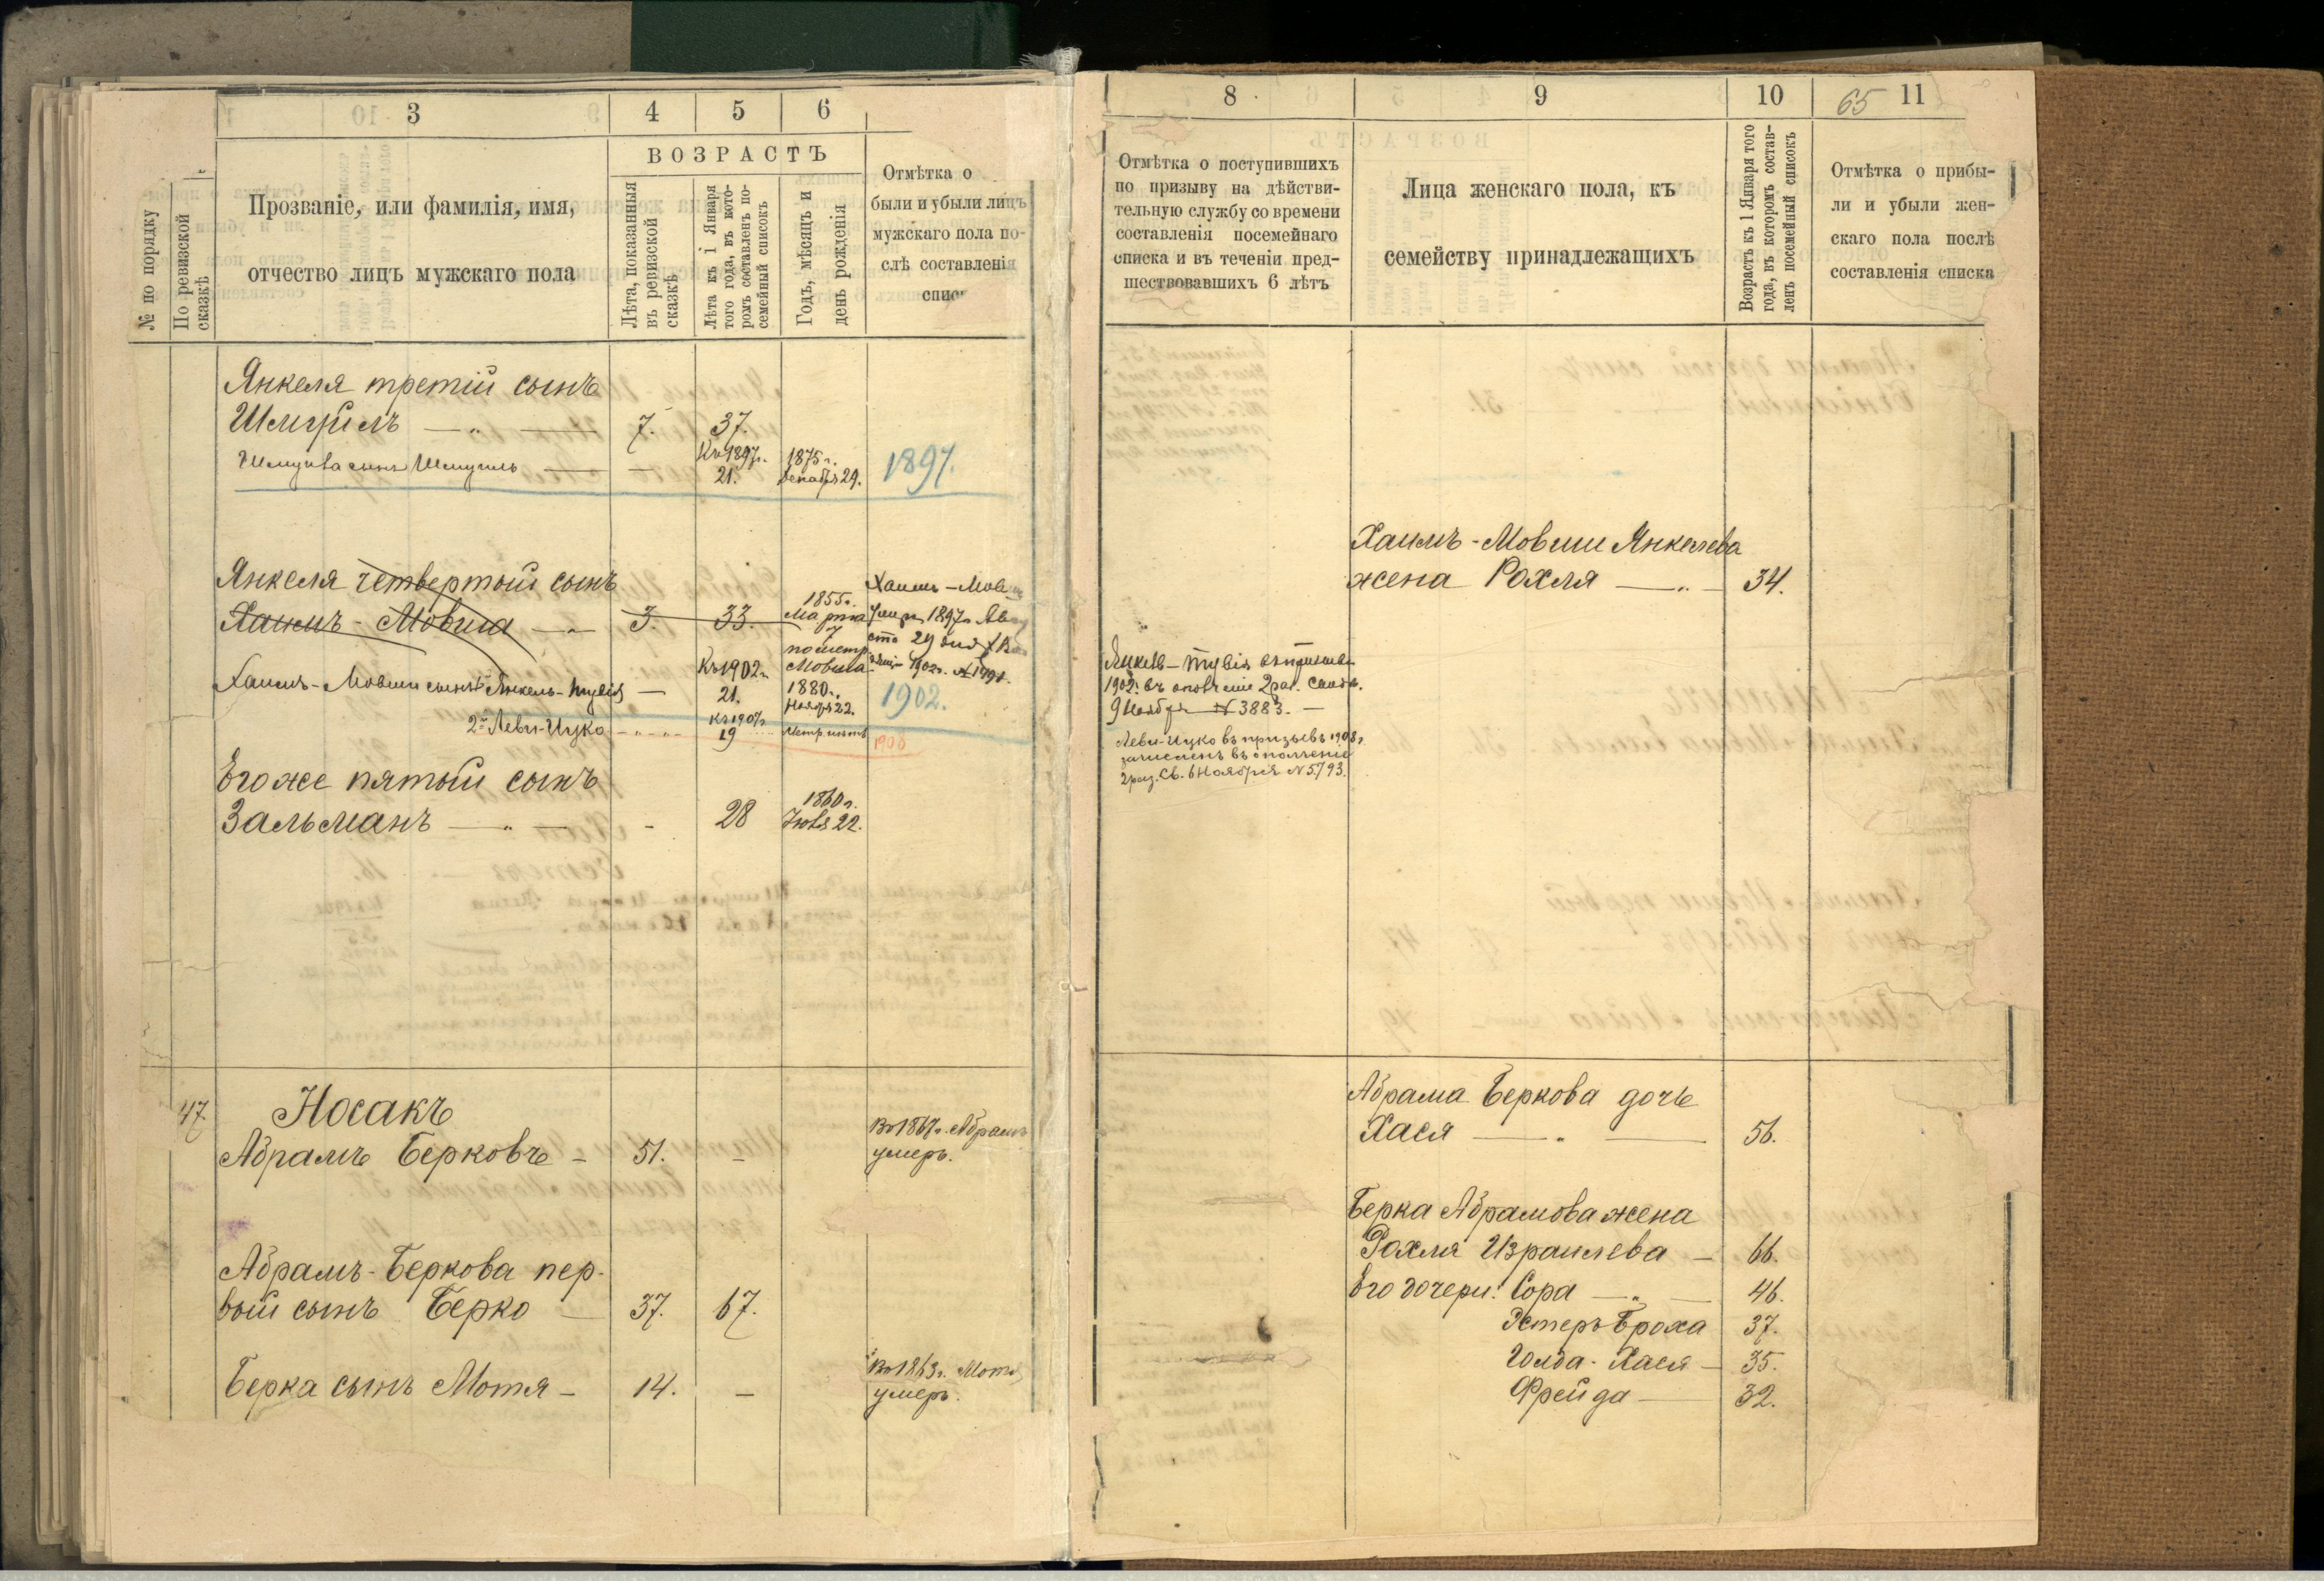 3
4
5
6
№ по порядку
По ревизской
сказкѣ
Прозваніе, или фамилія, имя,
отчество лицъ мужскаго пола
ВОЗРАСТЪ
Лѣта, показанныя
въ ревизской
сказкѣ
Лѣта къ 1 Января
того года, въ кото-
ромъ составленъ по-
семейный списокъ
Годъ, мѣсяцъ и
день рожденія
Отмѣтка о
были и убыли лицъ
мужскаго пола по-
слѣ составленія
спис
Янкеля третій сынъ
Шмуилъ — „ — 7. 37.
Шмуила сынъ Шмуилъ — — Къ 1897г. 21. 1875г. Декабря 29. 1897.
Янкеля четвертый сынъ
Хаимъ-Мовша — „ 3. 33. 1855г. Марта 7 по метр. Мовша
Хаимъ-Мов
умеръ 1897г. Авгу
ста 29 дня
1902г. № 1491.
Хаимъ-Мовши сынъ Янкель-Тувія — Къ 1902г. 21. 1880г. Ноября 22. 1902.
2й Леви-Ицко — „ — „ — Къ 1907г. 19 Метр. 1908
Его же пятый сынъ
Зальманъ — „ — - 28 1860г. Іюля 22.
47. Носакъ
Абрамъ Берковъ — 51. — Въ 1867г. Абрамъ
умеръ.
Абрамъ-Беркова пер-
вый сынъ Берко — 37. 67.
Берка сынъ Мотя — 14. — Въ 1863г. Мотя
умеръ.
8
9
10
65
11
Отмѣтка о поступившихъ
по призыву на дѣйстви-
тельную службу со времени
составленія посемейнаго
списка и въ теченіи пред-
шествовавшихъ 6 лѣтъ
Лица женскаго пола, къ
семейству принадлежащихъ
Возрастъ къ 1 Января того
года, въ которомъ состав-
ленъ посемейный списокъ
Отмѣтка о прибы-
ли и убыли жен-
скаго пола послѣ
составленія списка
Хаимъ-Мовши Янкелева
жена Рохля — „ — 34.
Янкель-Тувія въ призывъ
1902г. въ ополченіе 2 раз. Свид.
9 Ноября № 3883. —
Леви-Ицко въ призывъ 1908г.
зачисленъ въ ополченіе
2 раз. Св. 6 Ноября № 5793.
Абрама Беркова дочь
Хася — „ — 56.
Берка Абрамова жена
Рохля Израилева — 66.
Его дочери: Сора — „ — 46.
Эстеръ Броха 37.
Голда-Хася — 35.
Фрейда — 32.